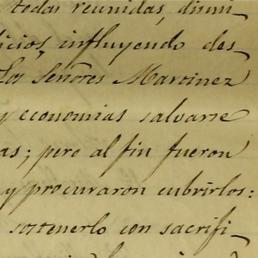 todas reunidas, dismi-
icios, influyendo des-
Los Señores Martinez
y economias salvarse
as; pero al fin fueron
y procuraron cubrirlos:
sostenerlo con sacrifi-